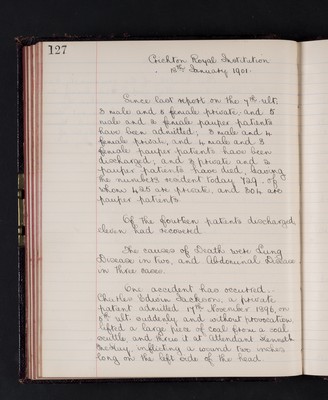 127
Crichton Royal Institution
15th January 1901.
Since last report on the 7th ult.
3 male and 6 female private and 5
male and 2 female pauper patients
have been admitted; 3 male and 4
female private, and 4 male and 3
female pauper patients have been
discharged; and 3 private and 2
pauper patients have died, leaving
the numbers resident today 729, of
whom 425 are private, and 304 are
pauper patients.
Of the fourteen patients discharged,
eleven had recovered
The causes of Death were Lung
Disease in two, and Abdominal Disease
in three cases.
One accident has occurred.
Charles Edwin Jackson, a private
patient admitted 17th November 1896, on
8th ult. suddenly and without provocation
lifted a large piece of coal from a coal
scuttle, and threw it at Attendant Kenneth
McKay inflicting a wound two inches
long on the left side of the head.